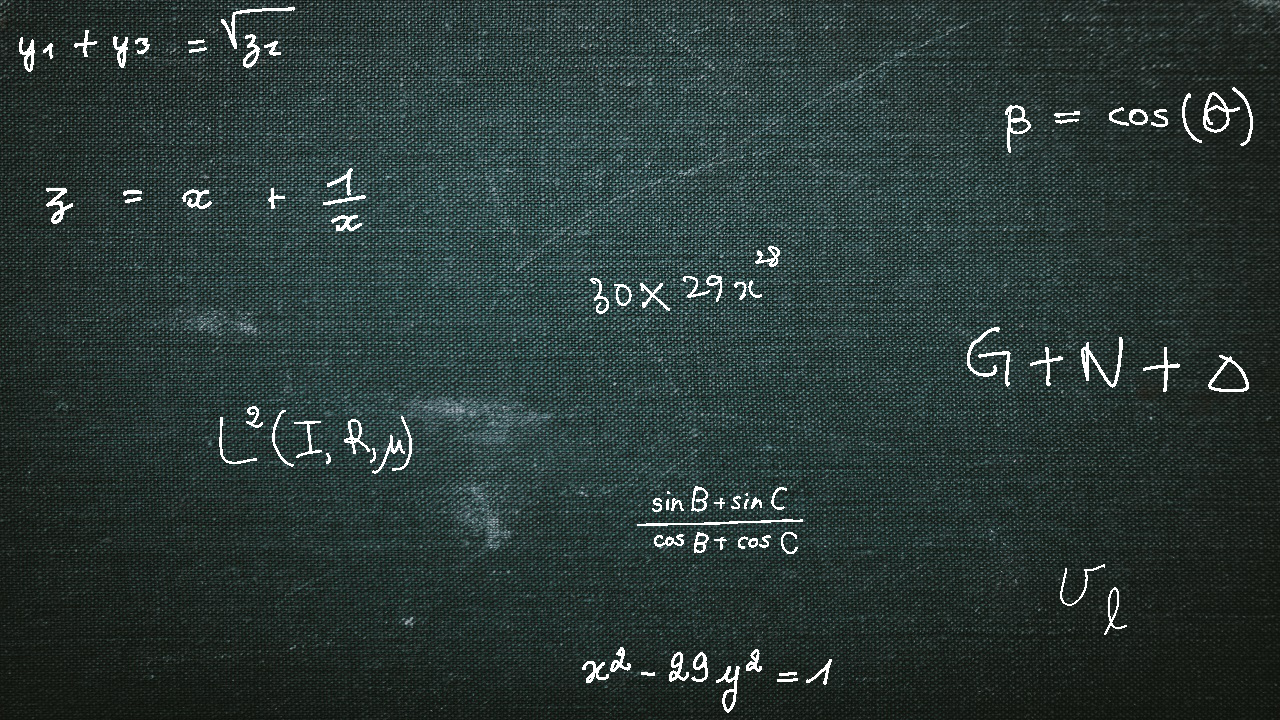 y₁ + y₃ = √z₂
β = cos(θ)
z = x + 1/x
30 × 29x²⁸
G + N + Δ
L²(I, R, μ)
(sin B + sin C)/(cos B + cos C)
v_l
x² - 29y² = 1